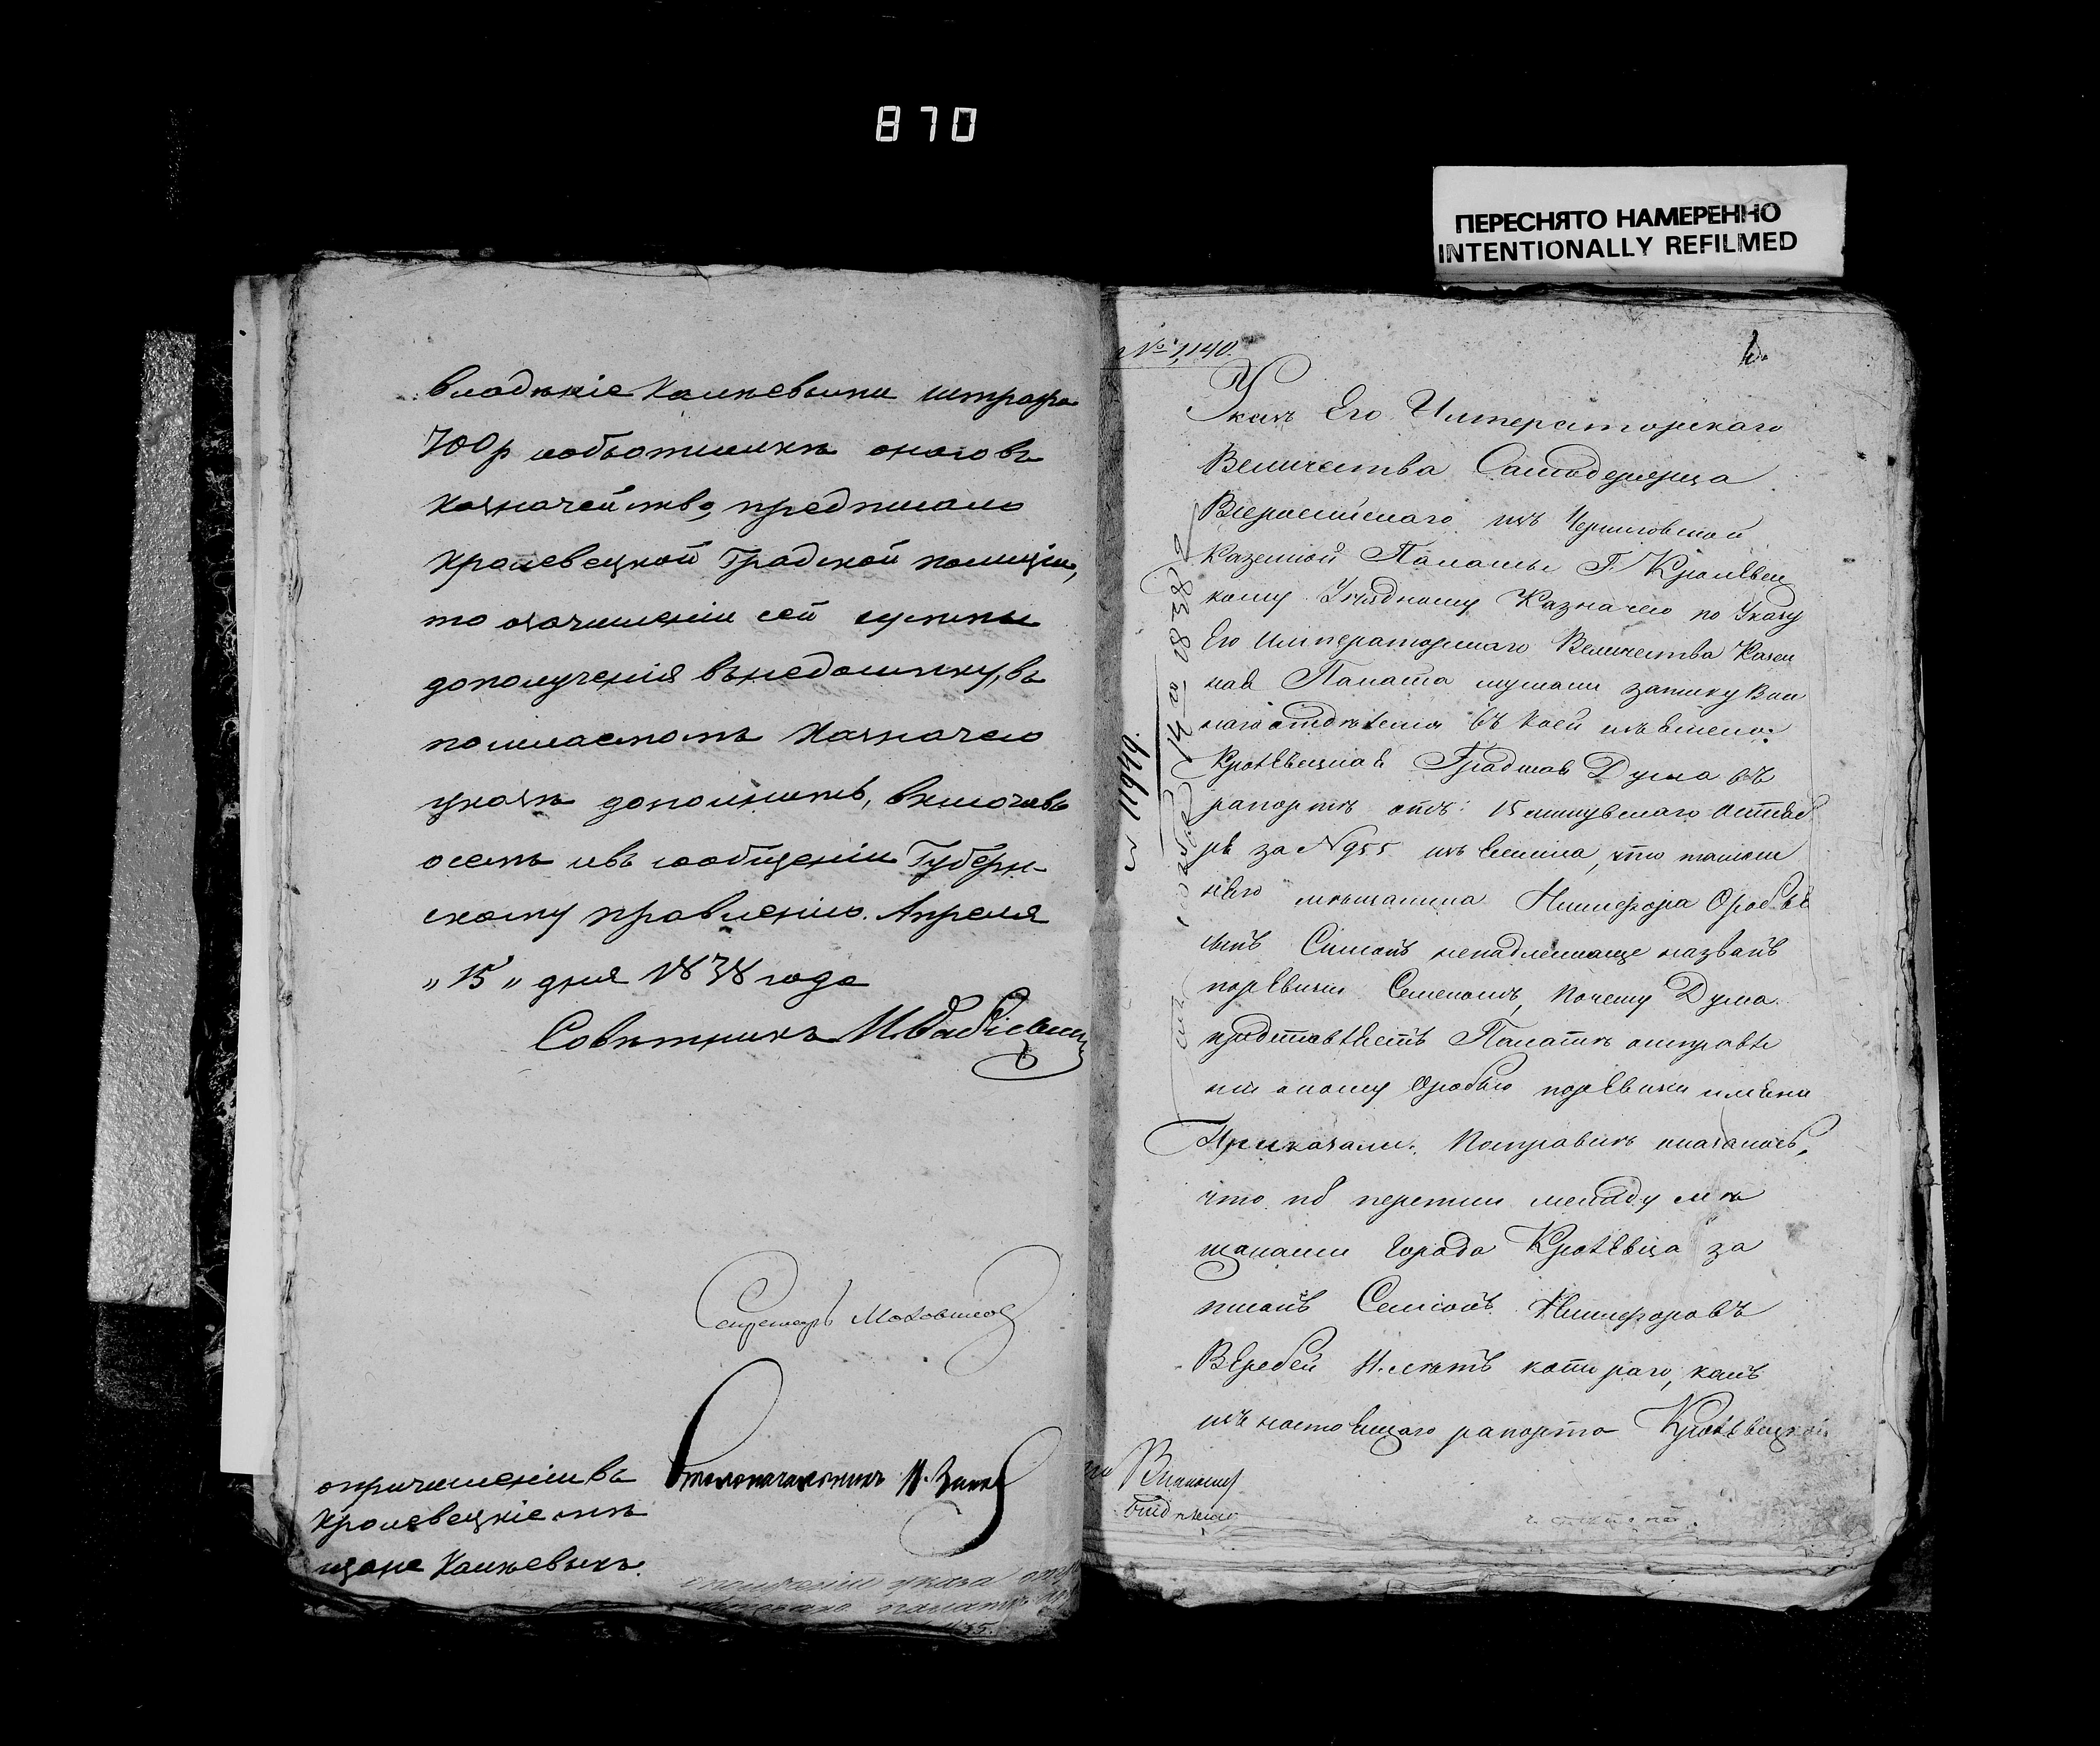 870
ПЕРЕСНЯТО НАМЕРЕННО
INTENTIONALLY REFILMED
владѣніе штрафа
700р онаго въ
Казначейство, предписало
Кролевецкой Градской полиціи,
то озачисленіи сей суммы
дополученія внедоимку, въ
Казначею
указъ дополнить, включивъ
осемъ ивъ сообщеніи Губерн-
скому правленію. Апреля
„15„ дня 1838 года
Совѣтникъ
Секретарь
Столоначальникъ
опричисленіи въ
Кролевецкіе мѣ
щане
№ 1,140.
Указъ Его Императорскаго
Величества Самодержца
Всероссійскаго изъ Черниговской
Казенной Палаты Г. Кролевец
кому Уѣздному Казначею по Указу
Его Императорскаго Величества Казен
ная Палата слушали записку Вин
наго отдѣленія въ коей изъяснено:
Кролевецкая Градская Дума въ
рапортѣ отъ 15 минувшаго Октяб
ря за №955 изъяснила, что тамош
няго мѣщанина Никифора Оробья
сынъ Симонъ ненадлежаще названъ
поревизіи Семеномъ, Почему Дума
представляетъ Палатѣ оисправле
ніи оному Оробью поревизіи имѣни
Приказали. Посправкѣ оказалось,
что по переписи между мѣ
щанами Города Кролевца за
писанъ Семіонъ Никифоровъ
Воробей лѣтъ котораго, какъ
изъ настоящаго рапорта Кролевецкой
№ 11949.
14го 1838 г